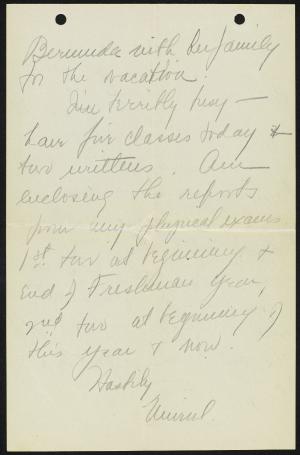 Bermuda with her family
for the vacation.
I'm terribly busy —
have five classes today &
two writtens. Am
enclosing the reports
from my physical exams
1st two at beginning &
end of Freshman year,
2nd two at beginning of
this year & now.
Hastily